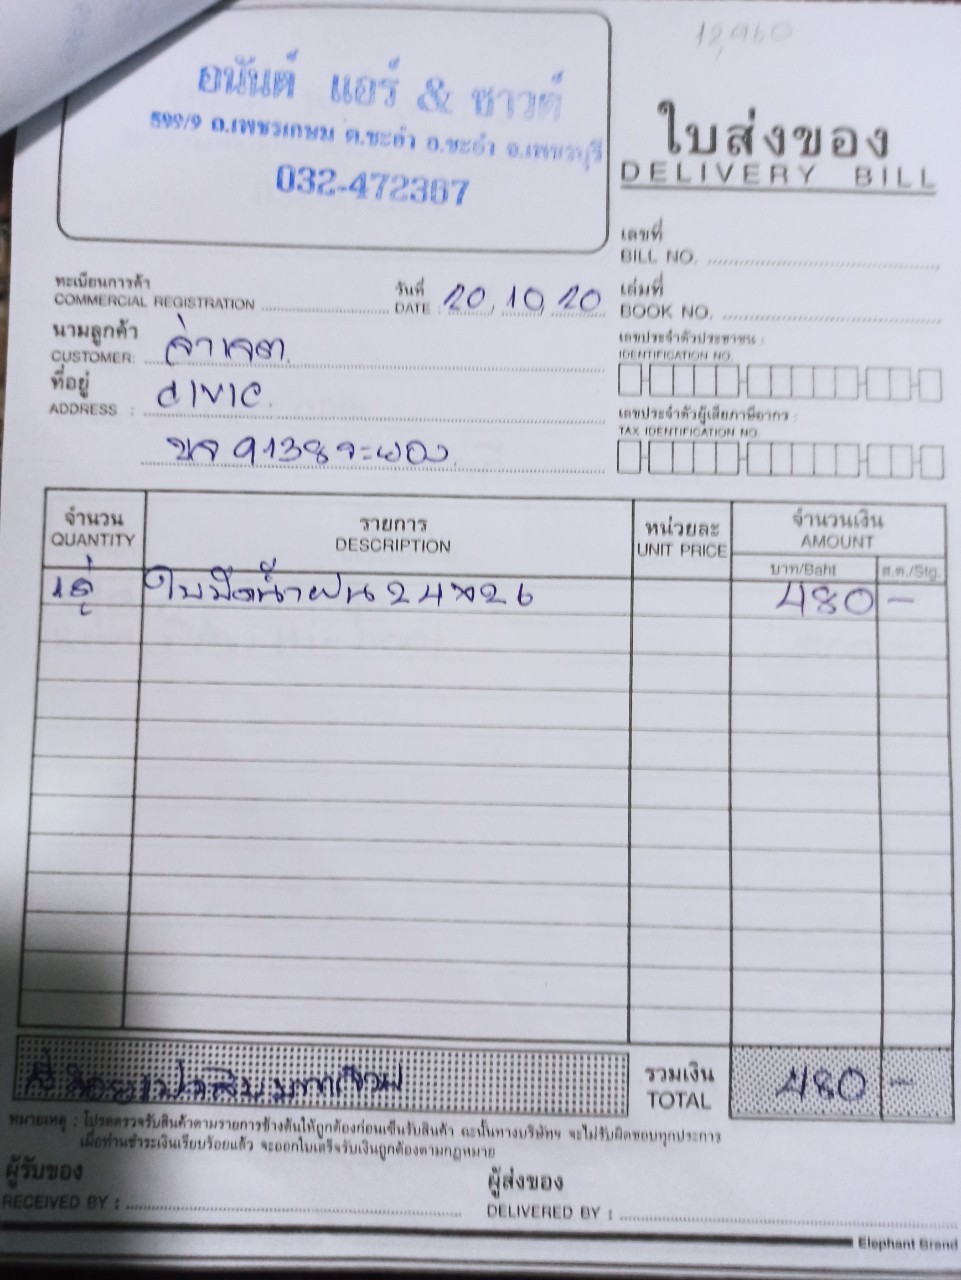 12,960
อนันต์ แอร์ & ซาวด์
599/9 ถ.เพชรเกษม ต.ชะอำ อ.ชะอำ จ.เพชรบุรี
032-472367
ใบส่งของ
DELIVERY BILL
เลขที่
BILL NO.
ทะเบียนการค้า
COMMERCIAL REGISTRATION
วันที่
DATE 20, 10, 20
เล่มที่
BOOK NO.
นามลูกค้า
CUSTOMER:
เลขประจำตัวประชาชน :
IDENTIFICATION NO.
ที่อยู่
ADDRESS : CIVIC
เลขประจำตัวผู้เสียภาษีอากร :
TAX IDENTIFICATION NO.
9138
จำนวน
QUANTITY
รายการ
DESCRIPTION
หน่วยละ
UNIT PRICE
จำนวนเงิน
AMOUNT
บาท/Baht
ส.ต./Stg.
1คู่ ใบปัดน้ำฝน 24x26 480 -
รวมเงิน
TOTAL 480 -
หมายเหตุ : โปรดตรวจรับสินค้าตามรายการข้างต้นให้ถูกต้องก่อนเซ็นรับสินค้า ฉะนั้นทางบริษัทฯ จะไม่รับผิดชอบทุกประการ
เมื่อท่านชำระเงินเรียบร้อยแล้ว จะออกใบเสร็จรับเงินถูกต้องตามกฎหมาย
ผู้รับของ
RECEIVED BY :
ผู้ส่งของ
DELIVERED BY :
Elephant Brand